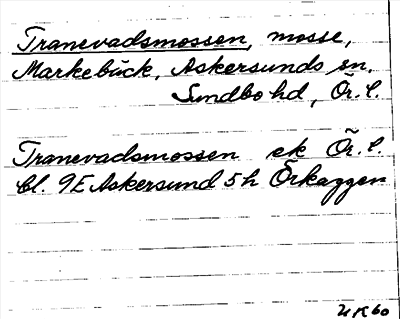 Tranevadsmossen, mosse,
Markebäck, Askersunds sn,
Sundbo hd, Ör. l.
Tranevadsmossen ek Ör. l.
bl. 9E Askersund 5h Örkaggen
UK60